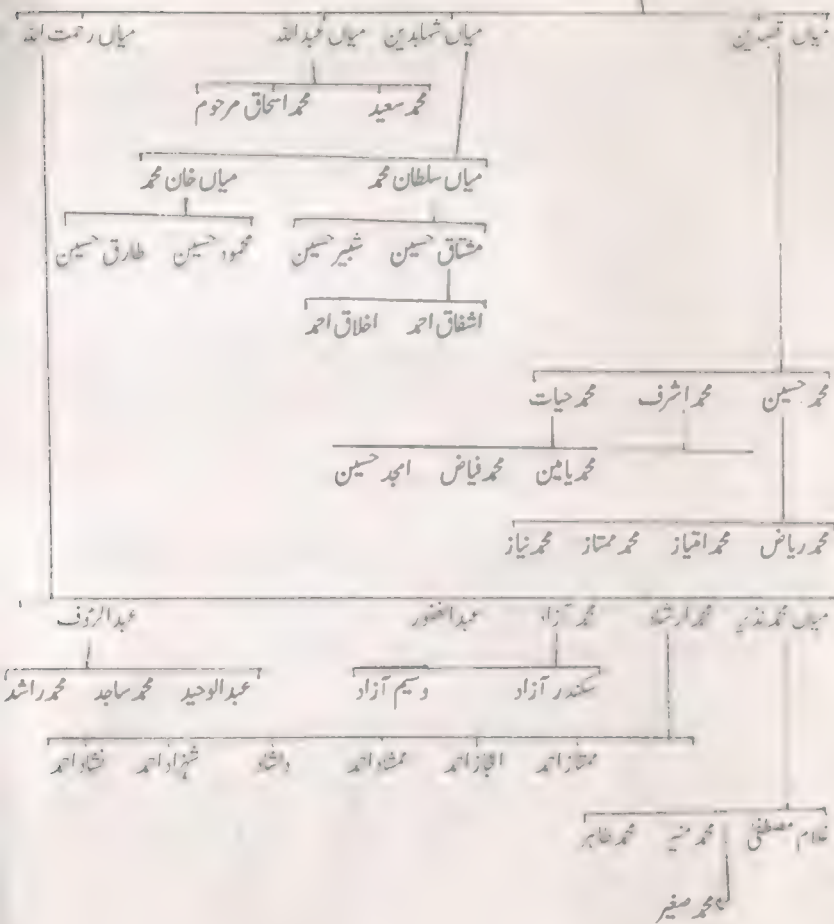 میاں قسبدین میاں شہابدین میاں عبداللہ میاں رحمت اللہ
محمد سعید محمد اسحاق مرحوم
میاں سلطان محمد میاں خان محمد
مشتاق حسین شبیر حسین محمود حسین طارق حسین
اشفاق احمد اخلاق احمد
محمد حسین محمد اشرف محمد حیات
محمد یامین محمد فیاض امجد حسین
محمد ریاض محمد امتیاز محمد ممتاز محمد نیاز
میاں محمد نذیر محمد ارشاد محمد آزاد عبدالغفور عبدالرؤف
سکندر آزاد وسیم آزاد عبدالوحید محمد ساجد محمد راشد
ممتاز احمد اعجاز احمد ممشاد احمد شہزاد احمد نشاد احمد
غلام مصطفیٰ محمد منیر محمد طاہر
محمد صغیر